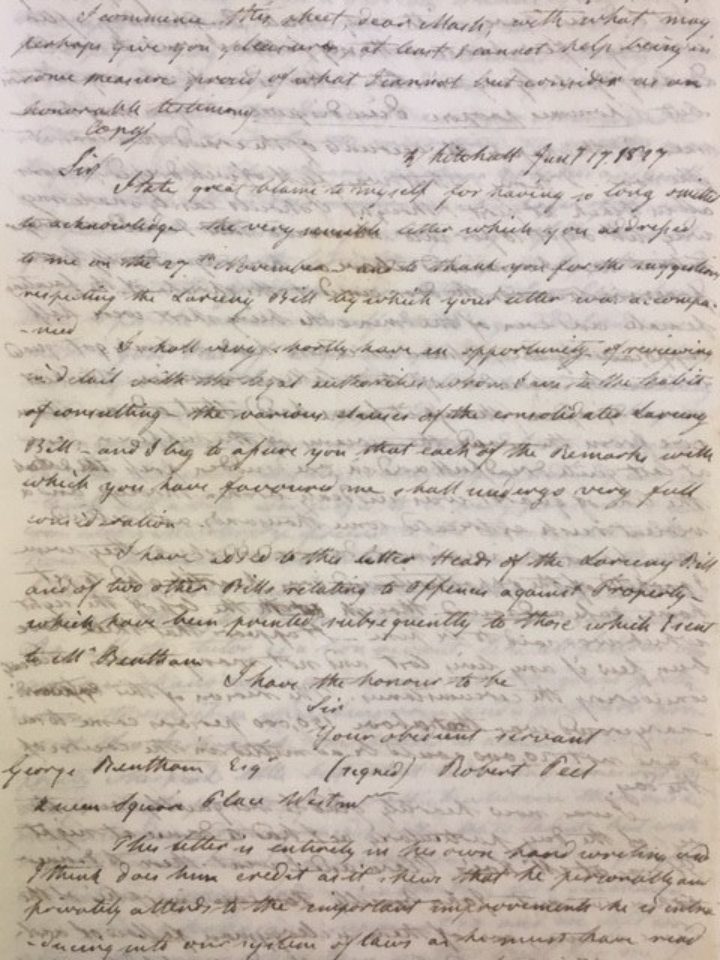 I commence this sheet, dear Mark, with what may
perhaps give you pleasure at least I cannot help being in
some measure proud of what I cannot but consider as an
honorable testimony
Copy
Whitehall Jany 17. 1827
Sir
I take great blame to myself for having so long omitted
to acknowledge the very sensible letter which you addressed
to me on the 27th November and to thank you for the suggestions
respecting the Larceny Bill by which your letter was accompa-
-nied
I shall very shortly have an opportunity of reviewing
in detail with the legal authorities whom I am in the habit
of consulting - the various clauses of the consolidated Larceny
Bill - and I beg to assure you that each of the Remarks with
which you have favoured me shall undergo very full
consideration
I have added to this letter Heads of the Larceny Bill
and of two other Bills relating to Offences against Property -
which have been printed subsequently to those which I sent
to Mr Bentham
I have the honour to be
Sir
Your obedient servant
George Bentham Esqr (signed) Robert Peel
Queen Square Place Westmr
This letter is entirely in his own hand writing and
I think does him credit as it shews that he personally and
privately attends to the important improvements he is intro
-ducing into our system of laws as he must have read